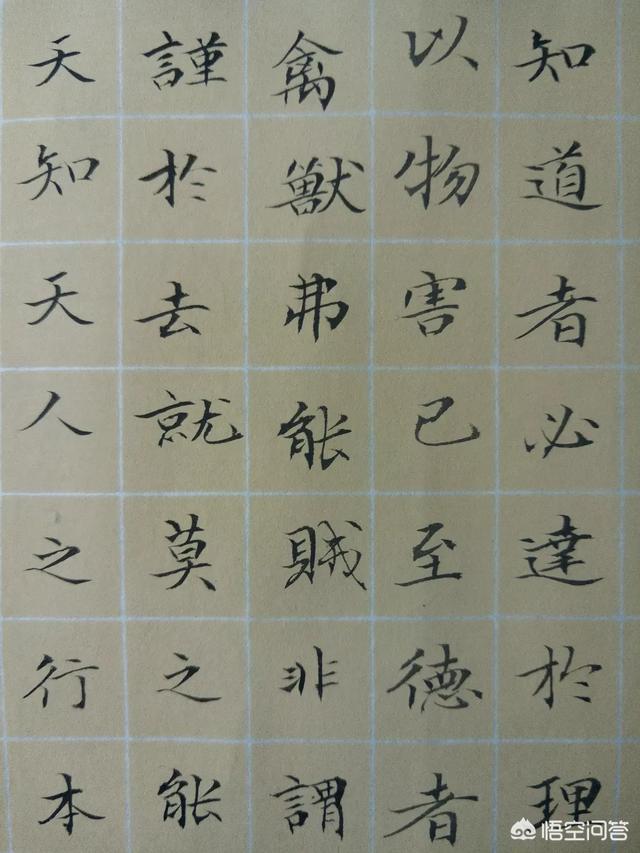 知道者必達於理
以物害己至德者
禽獸弗能賊非謂
謹於去就莫之能
天知天人之行本
悟空问答